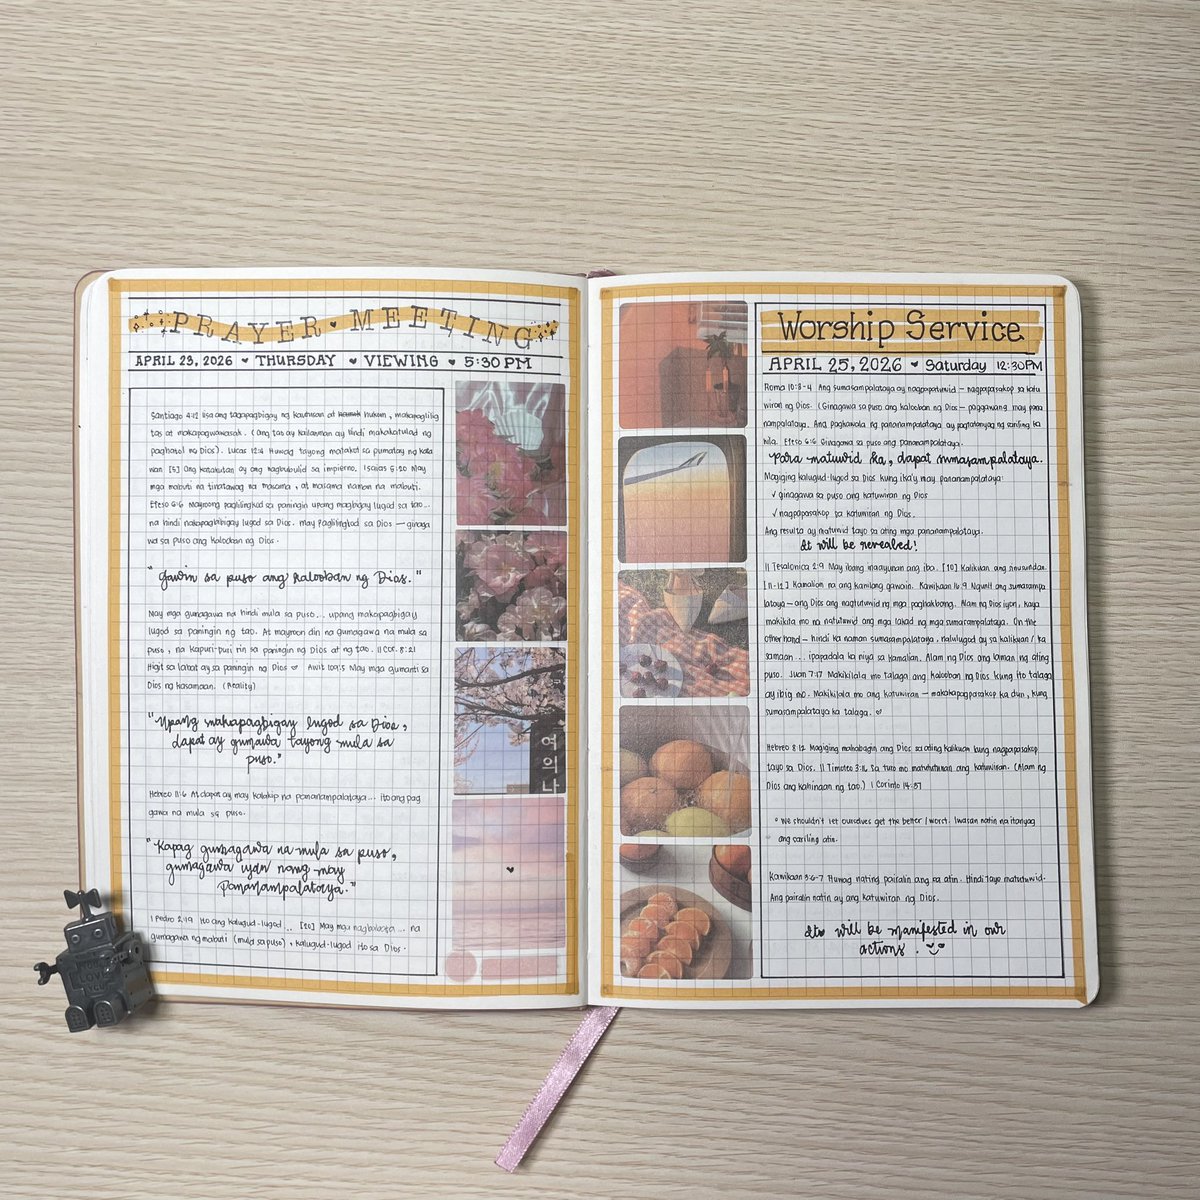 PRAYER ♥ MEETING
APRIL 23, 2026 ♥ THURSDAY ♥ VIEWING ♥ 5:30 PM
Santiago 4:12 Iisa ang tagapagbigay ng kautusan at hukom, makapagliligtas
tas at makapagwawasak. (Ang tao ay kailanman ay hindi makakatulad ng
paghatol ng Dios). Lucas 12:4 Huwag tayong matakot sa pumatay ng kata
wan [5] Ang katakutan ay ang nagbubulid sa impierno. Isaias 5:20 May
mga mabuti na tinatawag na masama, at masama naman na mabuti.
Efeso 6:6 Mayroong paglilingkod sa paningin upang magbigay lugod sa tao...
na hindi nakapagbibigay lugod sa Dios. May Paglilingkod sa Dios — ginaga
wa sa puso ang kalooban ng Dios.
"Gawin sa puso ang kalooban ng Dios."
May mga gumagawa na hindi mula sa puso... upang makapagbigay
lugod sa paningin ng tao. At mayroon din na gumagawa na mula sa
puso, na kapuri-puri rin sa paningin ng Dios at ng tao. II Cor. 8:21
Higit sa lahat ay sa paningin ng Dios ♡ Awit 109:5 May mga gumanti sa
Dios ng kasamaan. (Reality)
"Upang makapagbigay lugod sa Dios,
dapat ay gumawa tayong mula sa
puso."
Hebreo 11:6 At dapat ay may kalakip na pananampalataya... ito ang pag
gawa na mula sa puso.
"Kapag gumagawa na mula sa puso,
gumagawa iyan nang may
Pananampalataya."
1 Pedro 2:19 Ito ang kalugud-lugod .. [20] May mga nagbabata... na
gumagawa ng mabuti (mula sa puso), kalugud-lugod ito sa Dios.
여
의
나
LOVE
Worship Service
APRIL 25, 2026 ♥ Saturday 12:30PM
Roma 10:3-4 Ang sumasampalataya ay nagpapatuwid — nagpapasakop sa katu
wiran ng Dios. (Ginagawa sa puso ang kalooban ng Dios — paggawang may pana
nampalataya. Ang pagkawala ng pananampalataya ay pagtatanyag ng sariling ka
nila. Efeso 6:6 Ginagawa sa puso ang pananampalataya.
Para matuwid ka, dapat sumasampalataya.
Magiging kalugud-lugod sa Dios kung ika'y may pananampalataya:
✓ ginagawa sa puso ang katuwiran ng Dios
✓ nagpapasakop sa katuwiran ng Dios.
Ang resulta ay matuwid tayo sa ating mga pananampalataya.
It will be revealed!
II Tesalonica 2:9 May ibang maayunan ang iba. [10] Kalikuan ang sinusundan.
[11-12] Kamalian na ang kanilang gawain. Kawikaan 16:9 Ngunit ang sumasampa
lataya — ang Dios ang nagtutuwid ng mga paghakbang. Alam ng Dios iyon, kaya
makikita mo na natutuwid ang mga lakad ng mga sumasampalataya. On the
other hand — hindi ka naman sumasampalataya, nalulugod ay sa kalikuan / ka
samaan... ipapadala ka niya sa kamalian. Alam ng Dios ang laman ng ating
puso. Juan 7:17 Makikilala mo talaga ang kalooban ng Dios kung ito talaga
ay ibig mo. Makikilala mo ang katuwiran — makakapagpasakop ka dun, kung
sumasampalataya ka talaga. ♡
Hebreo 8:12 Magiging mahabagin ang Dios sa ating kalikuan kung nagpapasakop
tayo sa Dios. II Timoteo 3:16 Sa turo mo matututunan ang katuwiran. (Alam ng
Dios ang kahinaan ng tao.) 1 Corinto 14:37
° We shouldn't let ourselves get the better / worst. Iwasan natin na itanyag
ang sariling atin.
Kawikaan 3:6-7 Huwag nating pairalin ang sa atin. Hindi tayo matutuwid.
Ang pairalin natin ay ang katuwiran ng Dios.
It will be manifested in our
actions.